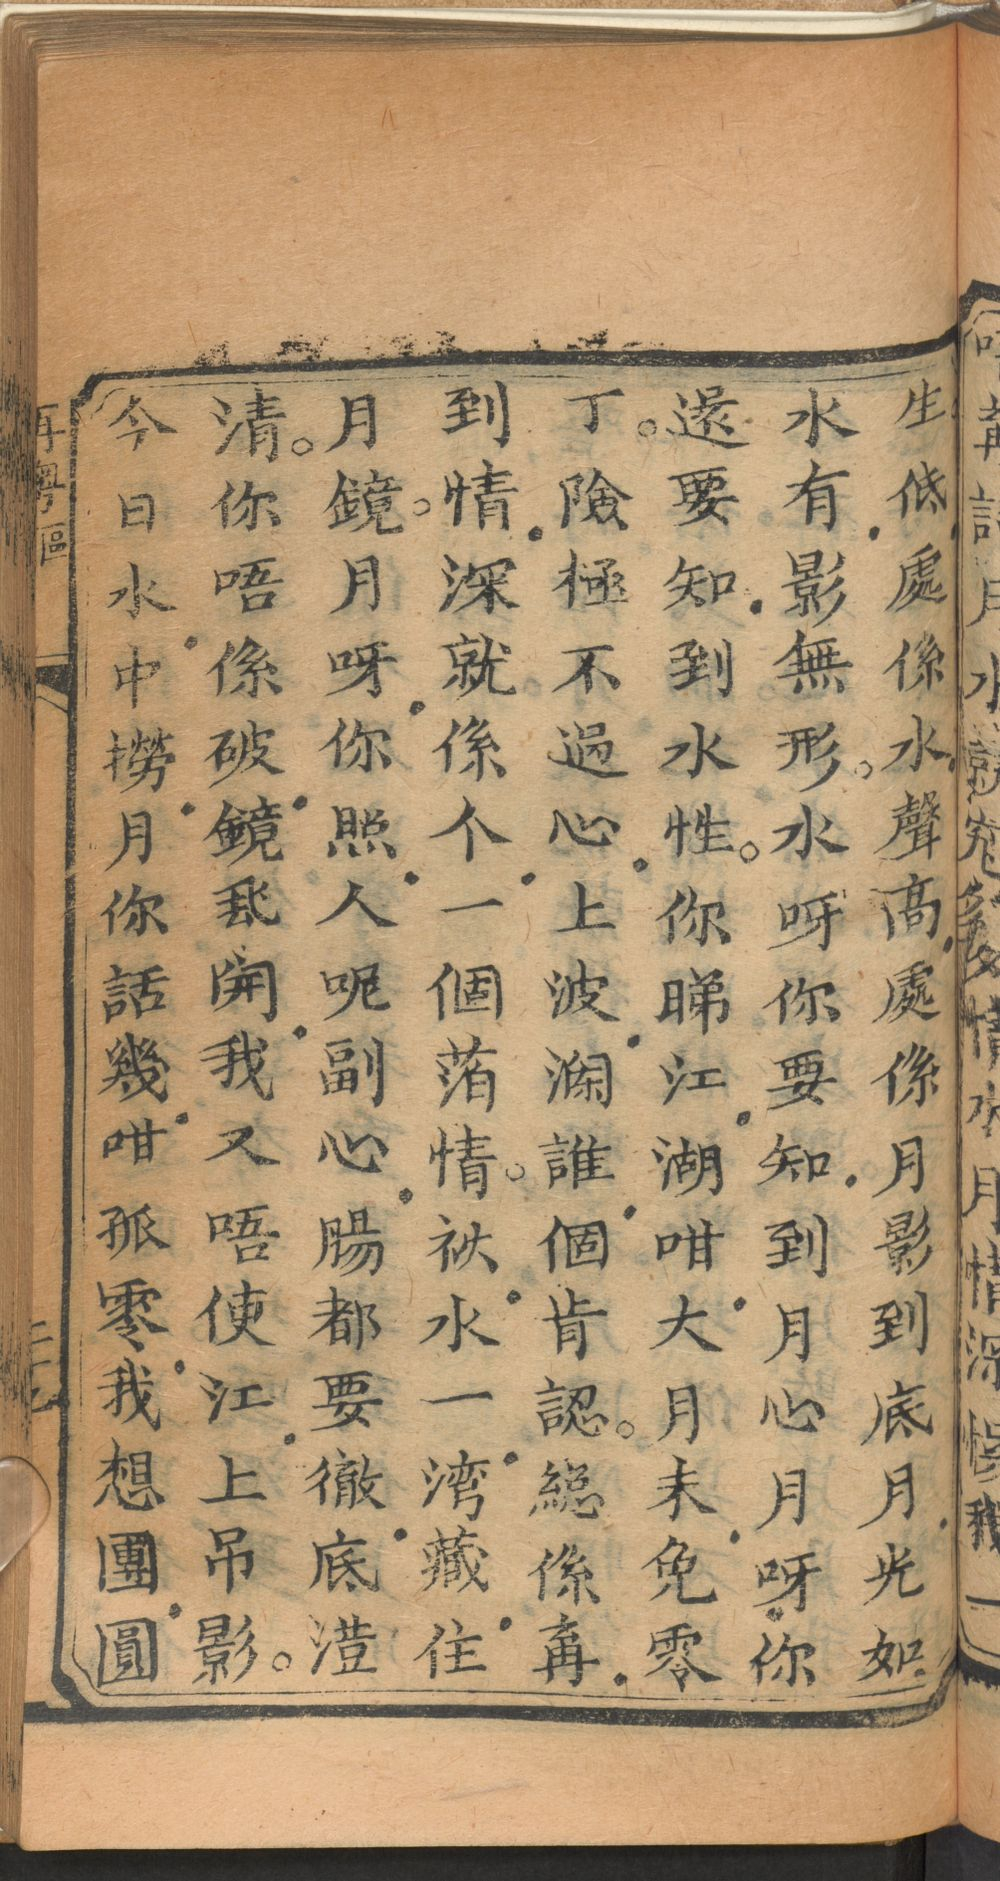 生低處係水聲高處係月影到底月光如
水有影無形。水呀你要知到月心月呀你
還要知到水性。你睇江湖咁大月未免零
丁。險極不過心上波瀾誰個肯認。總係再
到情深就係个一個落情衩水一湾藏住
月鏡。月呀你照人呢副心腸都要徹底澄
清。你唔係破鏡我開我又唔使江上吊影。
今日水中撈月你話幾咁孤零我想團圓
再粵謳